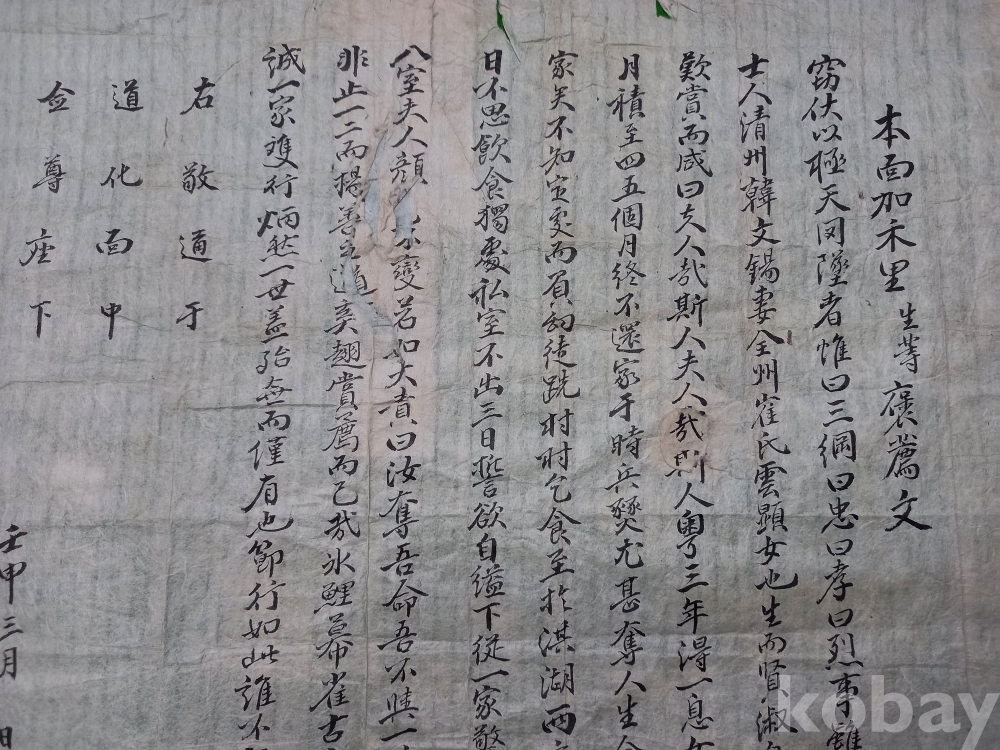 本面加禾里 生等 褒薦文
窃伏以極天罔墜者惟曰三綱曰忠曰孝曰烈事雖
士人清州韓文錫妻全州崔氏雲顯女也生而賢淑
歎賞而咸曰夫人哉斯人夫人哉斯人粤三年得一息女
月積至四五個月終不還家于時兵燹尤甚奪人生命
家矣不知定處而負幼徒跣村村乞食至於淇湖两
日不思飲食獨處私室不出三日誓欲自縊下從一家敬
入室夫人顔 不變若如大責曰汝奪吾命吾不與
非止一二而揚善之道奚趐賞薦而已哉氷鯉幕雀古
誠一家雙行炳然一世盖殆無而僅有也節行如此誰不
右敬通于
道化面中
僉尊座下
壬申三月 日
kobay